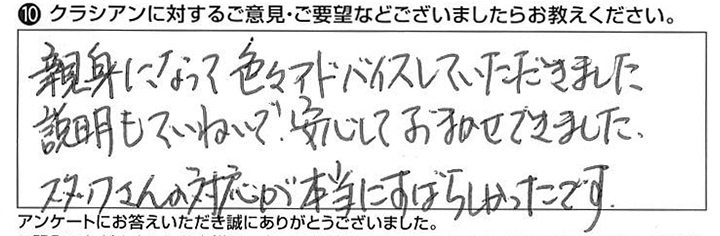 ❿ クラシアンに対するご意見・ご要望などございましたらお教えください。
親身になって色々アドバイスしていただきました
説明もていねいで、安心しておまかせできました、
スタッフさんの対応が本当にすばらしかったです.
アンケートにお答えいただき誠にありがとうございました。